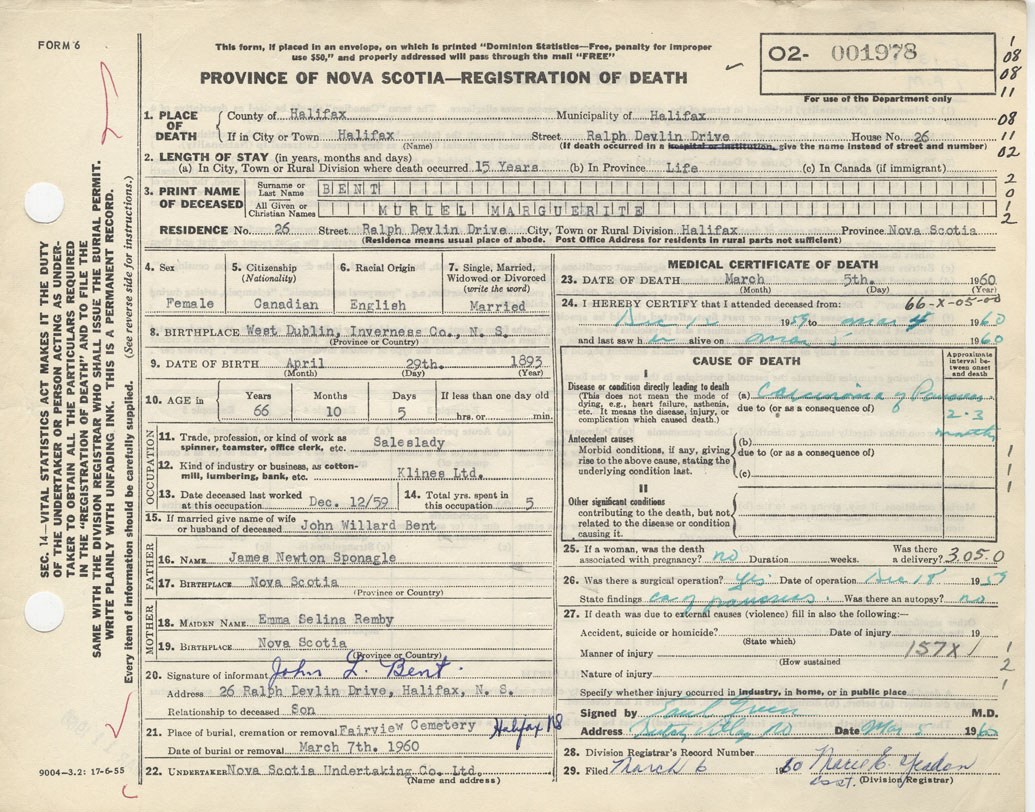 FORM 6
This form, if placed in an envelope, on which is printed "Dominion Statistics—Free, penalty for improper
use $50," and properly addressed will pass through the mail "FREE"
O2- 001978
PROVINCE OF NOVA SCOTIA—REGISTRATION OF DEATH
For use of the Department only
1. PLACE OF DEATH
County of Halifax Municipality of Halifax
If in City or Town Halifax Street Ralph Devlin Drive House No. 26
(Name) (If death occurred in a hospital or institution, give the name instead of street and number)
2. LENGTH OF STAY (in years, months and days)
(a) In City, Town or Rural Division where death occurred 15 Years (b) In Province Life (c) In Canada (if immigrant)
3. PRINT NAME OF DECEASED
Surname or Last Name BENT
All Given or Christian Names MURIEL MARGUERITE
RESIDENCE No. 26 Street Ralph Devlin Drive City, Town or Rural Division Halifax Province Nova Scotia
(Residence means usual place of abode. Post Office Address for residents in rural parts not sufficient)
08
08
11
08
11
02
2
0
2
SEC. 14—VITAL STATISTICS ACT MAKES IT THE DUTY
OF THE UNDERTAKER OR PERSON ACTING AS UNDER-
TAKER TO OBTAIN ALL THE PARTICULARS REQUIRED
IN THE "REGISTRATION OF DEATH" AND TO FILE THE
SAME WITH THE DIVISION REGISTRAR WHO SHALL ISSUE THE BURIAL PERMIT.
WRITE PLAINLY WITH UNFADING INK. THIS IS A PERMANENT RECORD.
Every item of information should be carefully supplied. (See reverse side for instructions.)
4. Sex
Female
5. Citizenship
(Nationality)
Canadian
6. Racial Origin
English
7. Single, Married,
Widowed or Divorced
(write the word)
Married
8. BIRTHPLACE West Dublin, Inverness Co., N. S.
(Province or Country)
9. DATE OF BIRTH April 29th. 1893
(Month) (Day) (Year)
10. AGE in
Years Months Days If less than one day old
66 10 5 hrs. or min.
OCCUPATION
11. Trade, profession, or kind of work as
spinner, teamster, office clerk, etc. Saleslady
12. Kind of industry or business, as cotton-
mill, lumbering, bank, etc. Klines Ltd.
13. Date deceased last worked
at this occupation Dec. 12/59
14. Total yrs. spent in
this occupation 5
15. If married give name of wife
or husband of deceased John Willard Bent
FATHER
16. NAME James Newton Sponagle
17. BIRTHPLACE Nova Scotia
(Province or Country)
MOTHER
18. MAIDEN NAME Emma Selina Remby
19. BIRTHPLACE Nova Scotia
(Province or Country)
20. Signature of informant John L. Bent.
Address 26 Ralph Devlin Drive, Halifax, N. S.
Relationship to deceased Son
21. Place of burial, cremation or removal Fairview Cemetery Halifax NS
Date of burial or removal March 7th. 1960
22. UNDERTAKER Nova Scotia Undertaking Co. Ltd.
(Name and address)
9004—3.2: 17-6-55
MEDICAL CERTIFICATE OF DEATH
23. DATE OF DEATH March 5th. 1960
(Month) (Day) (Year)
24. I HEREBY CERTIFY that I attended deceased from: 66-X-05-00
Dec 12 1959 to Mar 4 1960
and last saw her alive on Mar 5 1960
CAUSE OF DEATH
Approximate
interval be-
tween onset
and death
I
Disease or condition directly leading to death
(This does not mean the mode of
dying, e.g., heart failure, asthenia,
etc. It means the disease, injury, or
complication which caused death.)
(a) Carcinoma of Pancreas
due to (or as a consequence of)
2-3
months
Antecedent causes
Morbid conditions, if any, giving
rise to the above cause, stating the
underlying condition last.
(b)
due to (or as a consequence of)
(c)
II
Other significant conditions
contributing to the death, but not
related to the disease or condition
causing it.
25. If a woman, was the death
associated with pregnancy? no Duration weeks. Was there
a delivery? 3050
26. Was there a surgical operation? Yes Date of operation Dec 18 1959
State findings ca of pancreas. Was there an autopsy? no
27. If death was due to external causes (violence) fill in also the following:—
Accident, suicide or homicide? Date of injury 19
(State which)
Manner of injury 157X1
(How sustained
Nature of injury
Specify whether injury occurred in industry, in home, or in public place
Signed by M.D.
Address Date Mar 5 1960
28. Division Registrar's Record Number
29. Filed March 6 1960 Marie E. Yeadon
(Division Registrar)